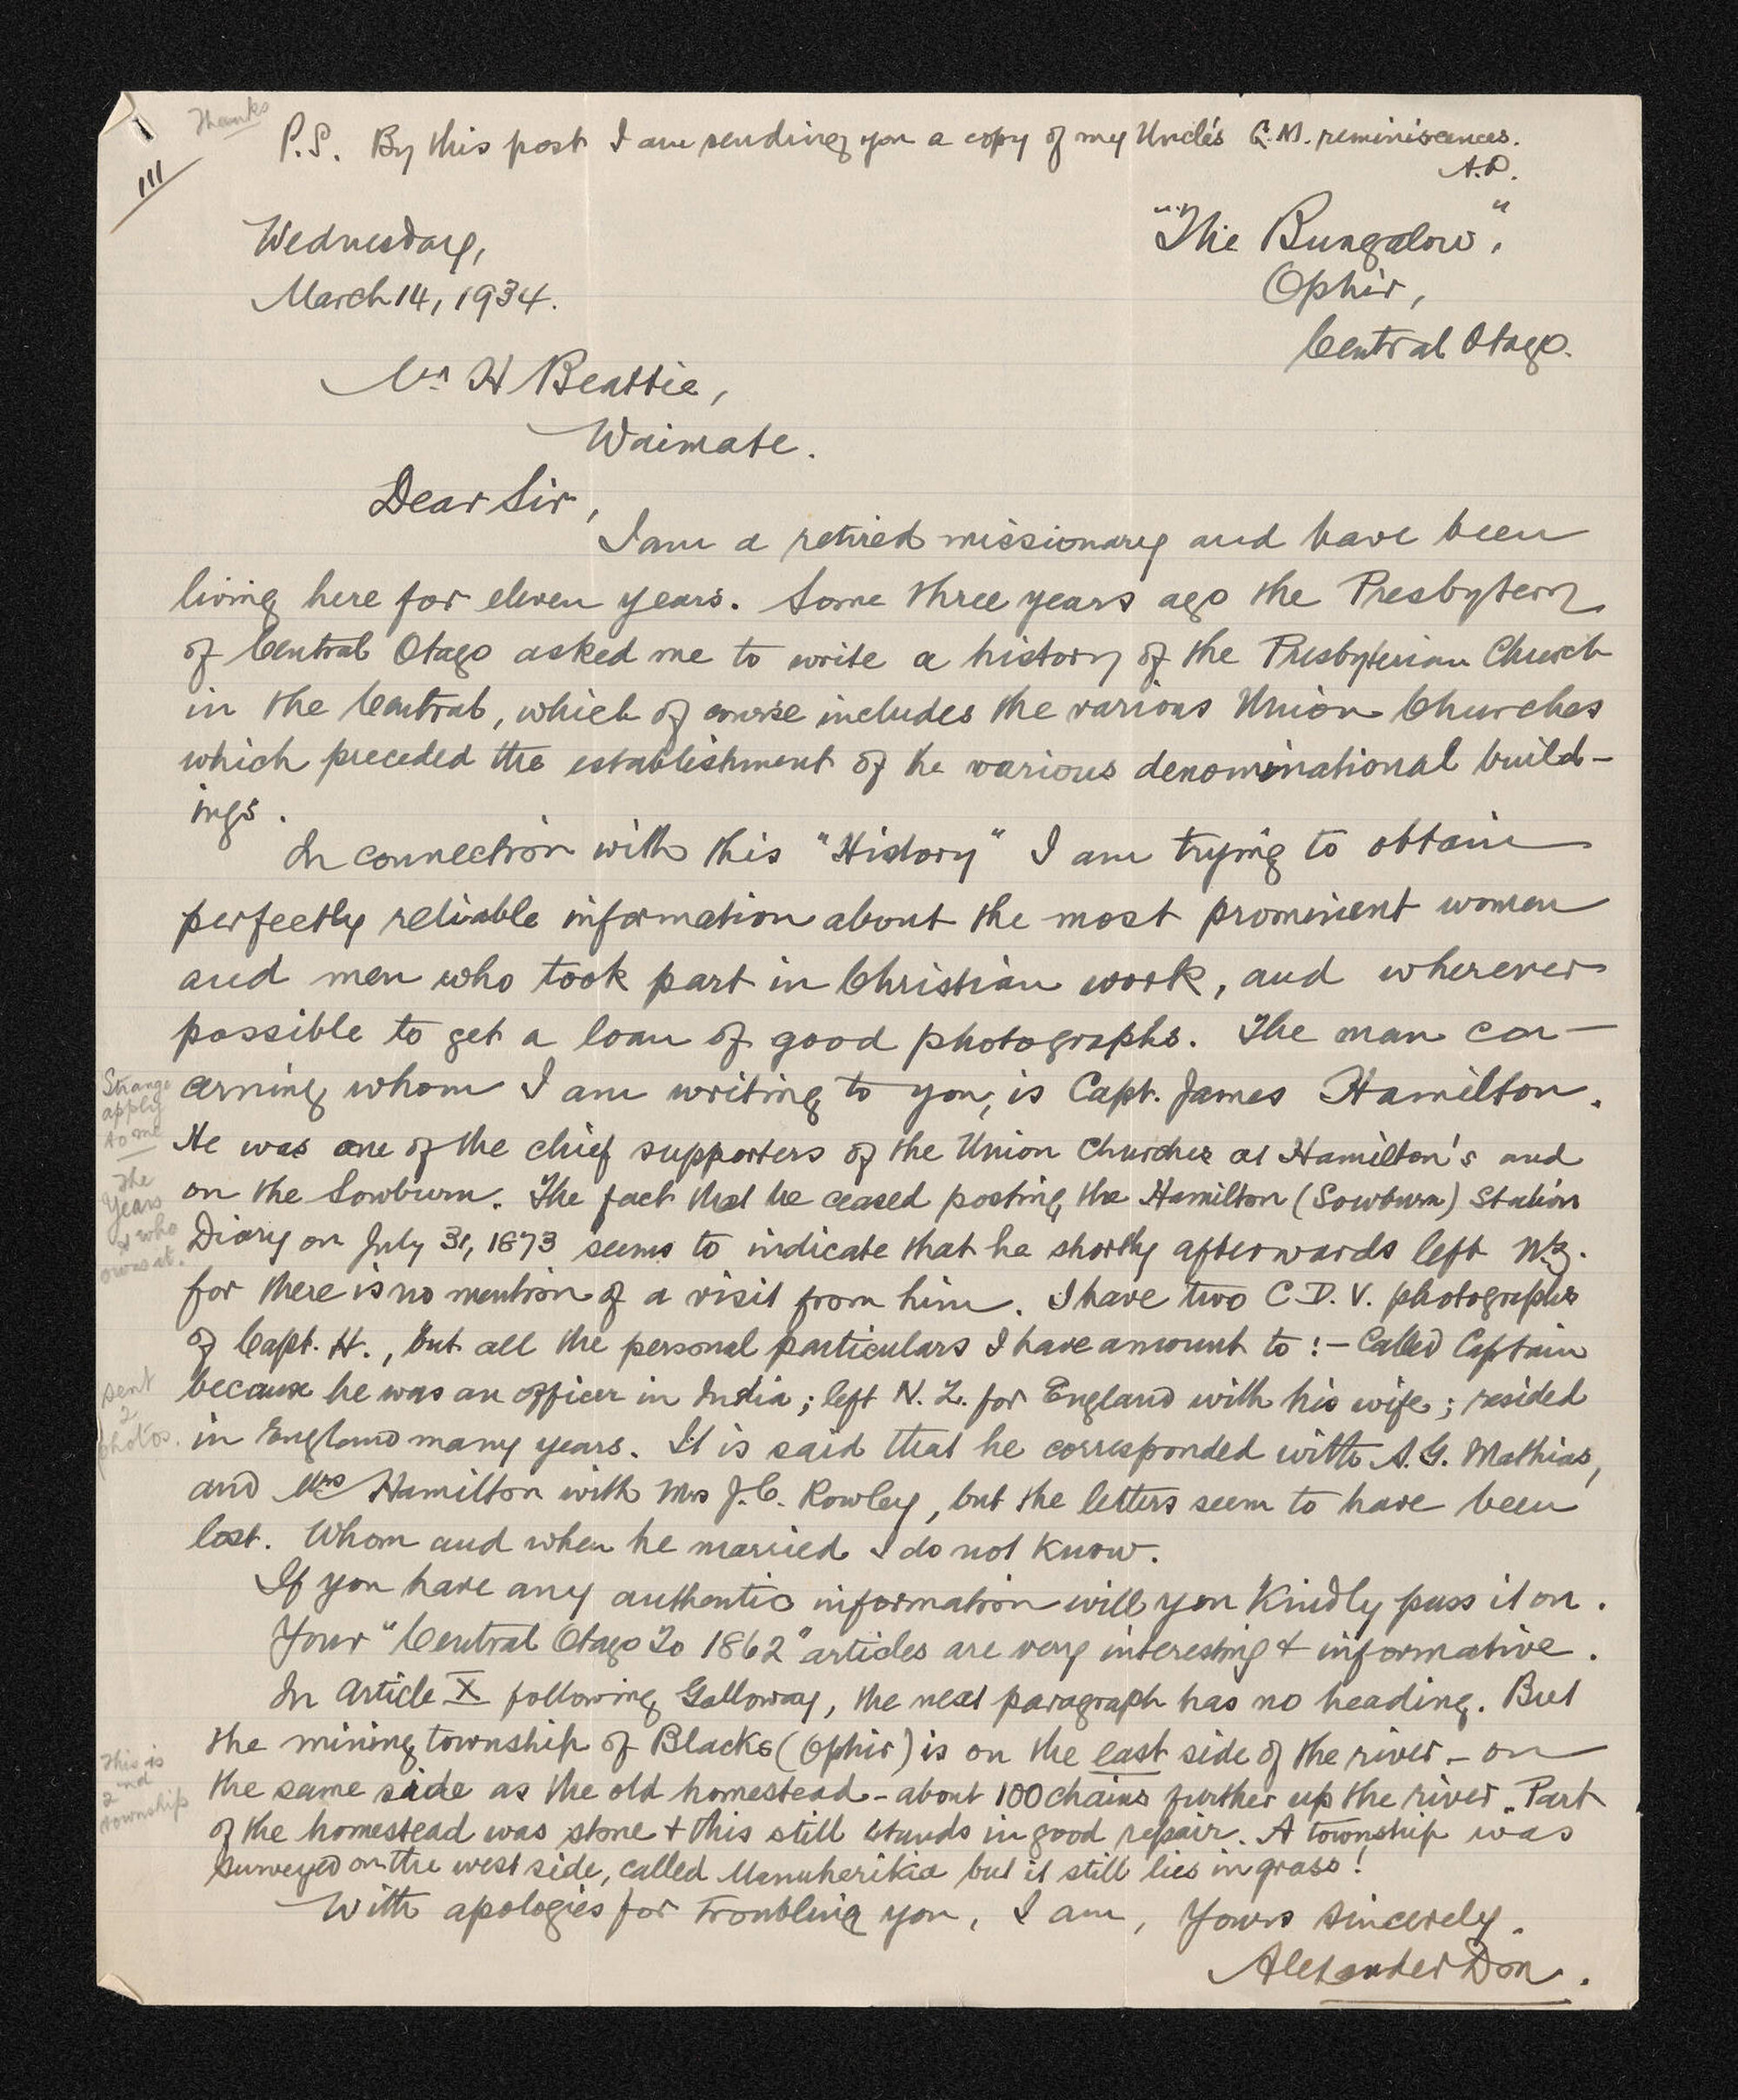 Thanks
P.S. By this post I am sending you a copy of my Uncle's G.M. reminiscences.
A.D.
111
Wednesday,
March 14, 1934.
"The Bungalow",
Ophir,
Central Otago.
Mr H Beattie,
Waimate.
Dear Sir,
I am a retired missionary and have been
living here for eleven years. Some three years ago the Presbytery
of Central Otago asked me to write a history of the Presbyterian Church
in the Central, which of course includes the various Union Churches
which preceded the establishment of the various denominational build-
ings.
In connection with this "History" I am trying to obtain
perfectly reliable information about the most prominent women
and men who took part in Christian work, and wherever
possible to get a loan of good photographs. The man con-
cerning whom I am writing to you, is Capt. James Hamilton.
Strange
apply
to me
He was one of the chief supporters of the Union Churches at Hamilton's and
on the Sowburn. The fact that he ceased posting the Hamilton (Sowburn) Station
Diary on July 31, 1873 seems to indicate that he shortly afterwards left N.Z.
for there is no mention of a visit from him. I have two C.D.V. photographs
The
Years
& who
owns it.
of Capt. H., but all the personal particulars I have amount to :- Called Captain
because he was an officer in India; left N.Z. for England with his wife; resided
in England many years. It is said that he corresponded with A.G. Mathias,
sent
2
photos.
and Mrs Hamilton with Mrs J.C. Rowley, but the letters seem to have been
lost. Whom and when he married I do not know.
If you have any authentic information will you kindly pass it on.
Your "Central Otago To 1862" articles are very interesting & informative.
In Article X following Galloway, the next paragraph has no heading. But
the mining township of Blacks (Ophir) is on the east side of the river - on
the same side as the old homestead - about 100 chains further up the river. Part
of the homestead was stone & this still stands in good repair. A township was
surveyed on the west side, called Manuherikia but it still lies in grass!
This is
2nd
township
With apologies for troubling you, I am, Yours sincerely.
Alexander Don.